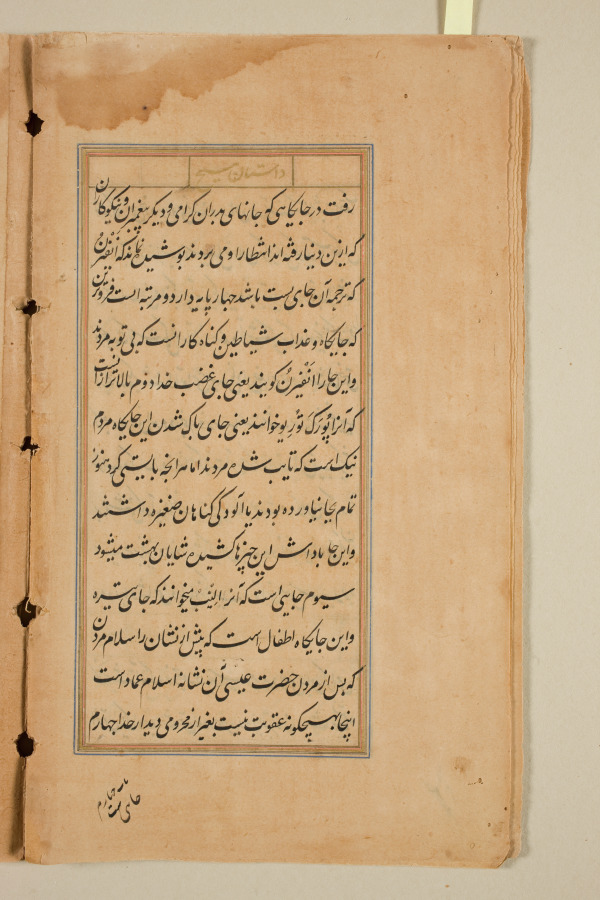 داستان مسیح
رفت در جایگاهی که جانهای پدران کرامی و دیکر پیغمبران و نیکوکاران
که ازین دنیا رفته اند انتظار او می بردند پوشیده نماند که انفرنُ
که ترجمه آن جای پست باشد چهار پایه دارد و مرتبه است فروترین
که جایکاه و عذاب شیاطین و کناه کارانست که بی توبه مردند
و این جا را انفیرنُ کویند یعنی جای غضب خدا دوم بالاتر ازانست
که آنرا پُورکَ تورِیو خوانند یعنی جای پاک شدن این جایکاه مردم
نیک است که تایب شده مردند اما هر آنچه بایستی کرد هنوز
تمام بجا نیاورده بودند یا آلودکی کناهان صغیره داشتند
و این جا پاداش این چیزها کشیده شایان بهشت میشود
سیوم جایی است که آنرا لیَنب میخوانند که جای تیره
و این جایکاه اطفال است که پیش از نشان اسلام مردن
که پس از مردن حضرت عیسی آن نشانه اسلام عماد است
اینجا بهیچکونه عقوبت نیست بغیر از محرومی دیدار خدا چهارم
جای است چهارم